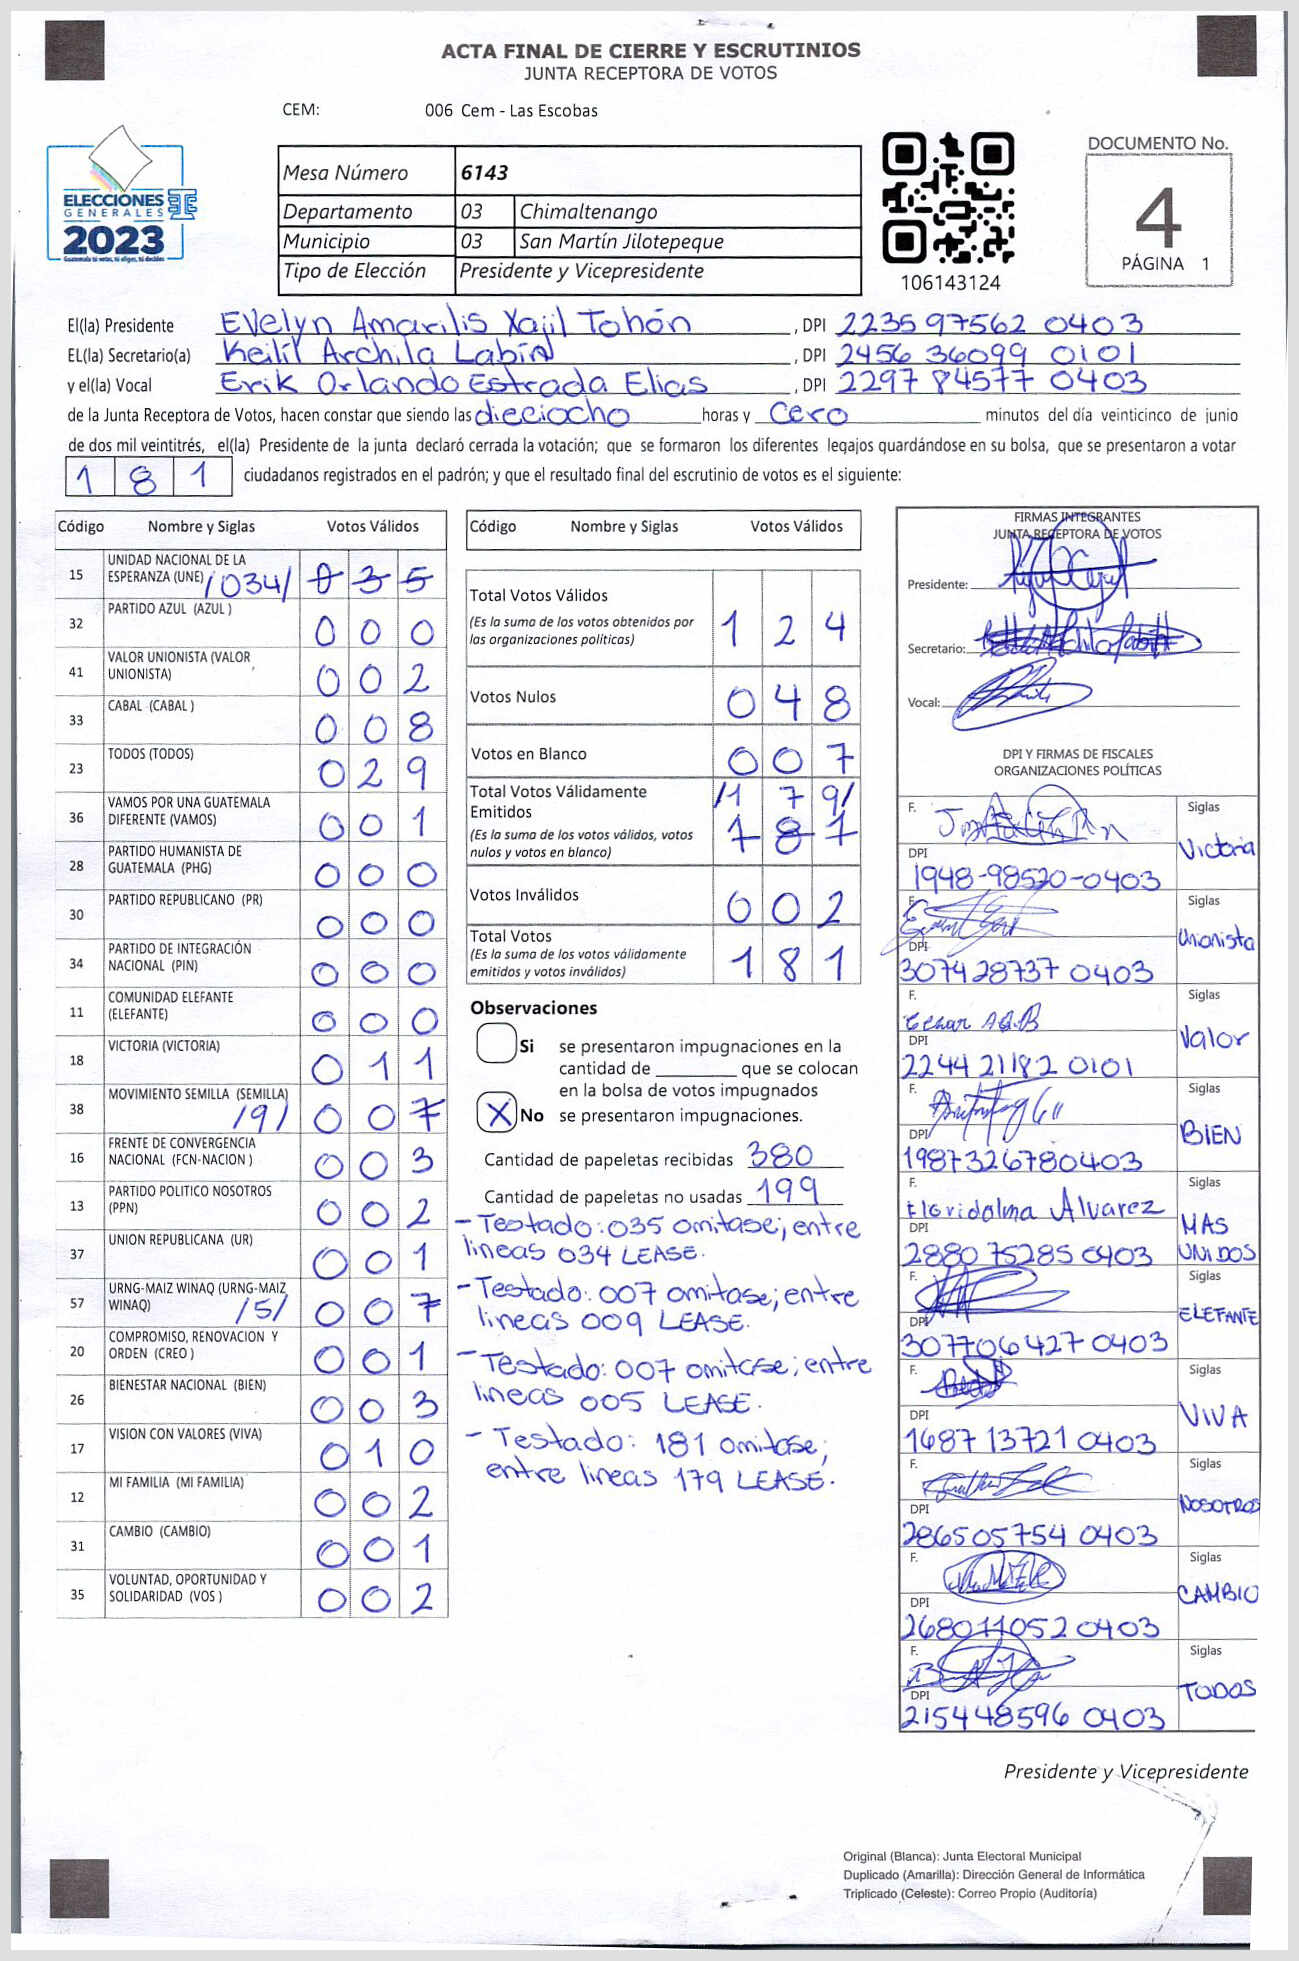 ACTA FINAL DE CIERRE Y ESCRUTINIOS
JUNTA RECEPTORA DE VOTOS
CEM: 006 Cem - Las Escobas
ELECCIONES
GENERALES
2023
Guatemala tú votas, tú eliges, tú decides
Mesa Número 6143
Departamento 03 Chimaltenango
Municipio 03 San Martín Jilotepeque
Tipo de Elección Presidente y Vicepresidente
106143124
DOCUMENTO No.
4
PÁGINA 1
El(la) Presidente Evelyn Amarilis Xajil Tohón, DPI 2235 97562 0403
EL(la) Secretario(a) Keilil Archila Labin, DPI 2456 36099 0101
y el(la) Vocal Erik Orlando Estrada Elias, DPI 2297 84577 0403
de la Junta Receptora de Votos, hacen constar que siendo las dieciocho horas y cero minutos del día veinticinco de junio
de dos mil veintitrés, el(la) Presidente de la junta declaró cerrada la votación; que se formaron los diferentes legajos guardándose en su bolsa, que se presentaron a votar
181 ciudadanos registrados en el padrón; y que el resultado final del escrutinio de votos es el siguiente:
Código Nombre y Siglas Votos Válidos
15 UNIDAD NACIONAL DE LA ESPERANZA (UNE) /034/ 035
32 PARTIDO AZUL (AZUL ) 000
41 VALOR UNIONISTA (VALOR UNIONISTA) 002
33 CABAL (CABAL ) 008
23 TODOS (TODOS) 029
36 VAMOS POR UNA GUATEMALA DIFERENTE (VAMOS) 001
28 PARTIDO HUMANISTA DE GUATEMALA (PHG) 000
30 PARTIDO REPUBLICANO (PR) 000
34 PARTIDO DE INTEGRACIÓN NACIONAL (PIN) 000
11 COMUNIDAD ELEFANTE (ELEFANTE) 000
18 VICTORIA (VICTORIA) 011
38 MOVIMIENTO SEMILLA (SEMILLA) /9/ 007
16 FRENTE DE CONVERGENCIA NACIONAL (FCN-NACION ) 003
13 PARTIDO POLITICO NOSOTROS (PPN) 002
37 UNION REPUBLICANA (UR) 001
57 URNG-MAIZ WINAQ (URNG-MAIZ WINAQ) /5/ 007
20 COMPROMISO, RENOVACION Y ORDEN (CREO ) 001
26 BIENESTAR NACIONAL (BIEN) 003
17 VISION CON VALORES (VIVA) 010
12 MI FAMILIA (MI FAMILIA) 002
31 CAMBIO (CAMBIO) 001
35 VOLUNTAD, OPORTUNIDAD Y SOLIDARIDAD (VOS ) 002
Código Nombre y Siglas Votos Válidos
Total Votos Válidos 124
(Es la suma de los votos obtenidos por
las organizaciones políticas)
Votos Nulos 048
Votos en Blanco 007
Total Votos Válidamente Emitidos /179/ 181
(Es la suma de los votos válidos, votos
nulos y votos en blanco)
Votos Inválidos 002
Total Votos 181
(Es la suma de los votos válidamente
emitidos y votos inválidos)
Observaciones
Si se presentaron impugnaciones en la
cantidad de ________ que se colocan
en la bolsa de votos impugnados
X No se presentaron impugnaciones.
Cantidad de papeletas recibidas 380
Cantidad de papeletas no usadas 199
- Testado: 035 omitase; entre
lineas 034 LEASE.
- Testado: 007 omitase; entre
lineas 009 LEASE.
- Testado: 007 omitase; entre
lineas 005 LEASE.
- Testado: 181 omitase;
entre lineas 179 LEASE.
FIRMAS INTEGRANTES
JUNTA RECEPTORA DE VOTOS
Presidente:
Secretario:
Vocal:
DPI Y FIRMAS DE FISCALES
ORGANIZACIONES POLÍTICAS
F. Siglas Victoria
DPI 1948-98520-0403
F. Siglas Unionista
DPI 3074 28737 0403
F. Siglas Valor
DPI 2244 21182 0101
F. Siglas BIEN
DPI 1987326780403
F. Floridalma Alvarez Siglas MAS UNIDOS
DPI 2880 75285 0403
F. Siglas ELEFANTE
DPI 307706427 0403
F. Siglas VIVA
DPI 1687 13721 0403
F. Siglas NOSOTROS
DPI 286505754 0403
F. Siglas CAMBIO
DPI 268011052 0403
F. Siglas TODOS
DPI 215448596 0403
Presidente y Vicepresidente
Original (Blanca): Junta Electoral Municipal
Duplicado (Amarilla): Dirección General de Informática
Triplicado (Celeste): Correo Propio (Auditoría)